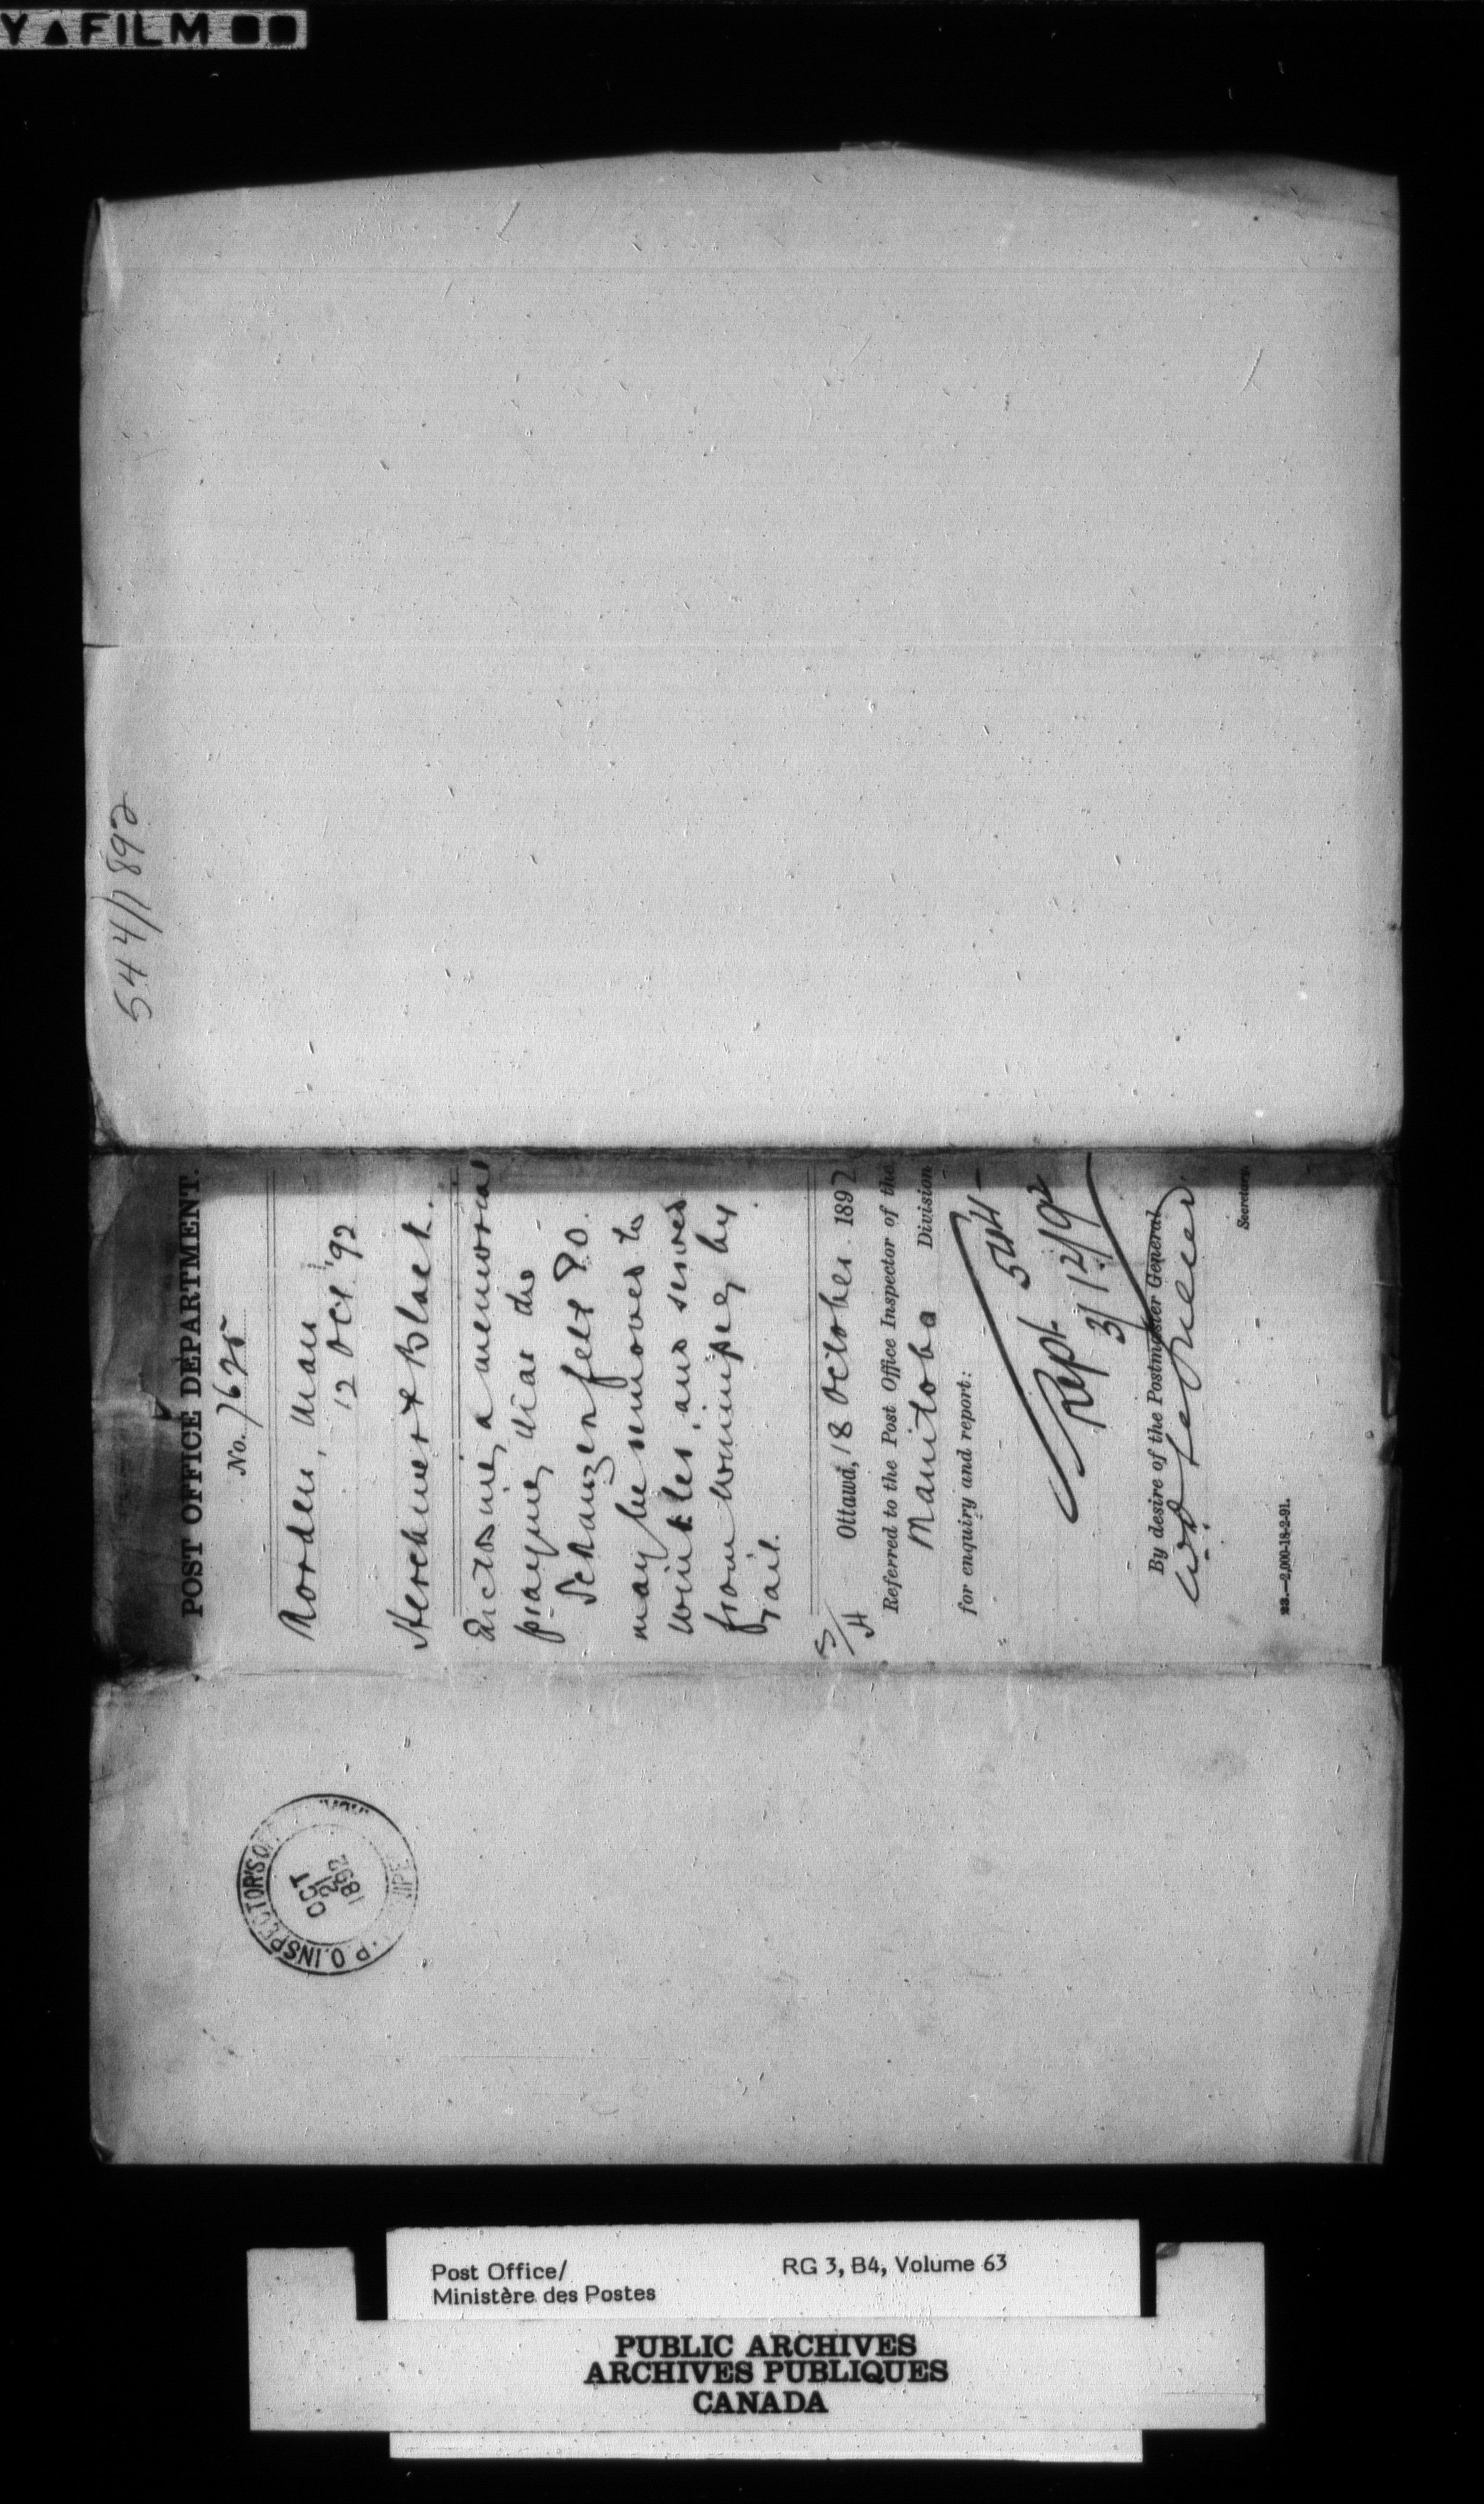 Y▲FILM
544/1892
POST OFFICE DEPARTMENT.
No. 7625
Morden, Man
12 Oct '92
Herchmer & Black.
Enclosing a memorial
praying that the
Schanzenfelt P.O.
may be removed to
Winkler, and served
from Winnipeg by
rail.
Ottawa, 18 October 1892
Referred to the Post Office Inspector of the
Manitoba Division
for enquiry and report:
Rept. 544-
3/12/92
By desire of the Postmaster General
Secretary.
23.—2,000-18-2-91.
P.O. INSPECTOR'S OF
OCT
21
1892
Post Office/
Ministère des Postes
RG 3, B4, Volume 63
PUBLIC ARCHIVES
ARCHIVES PUBLIQUES
CANADA